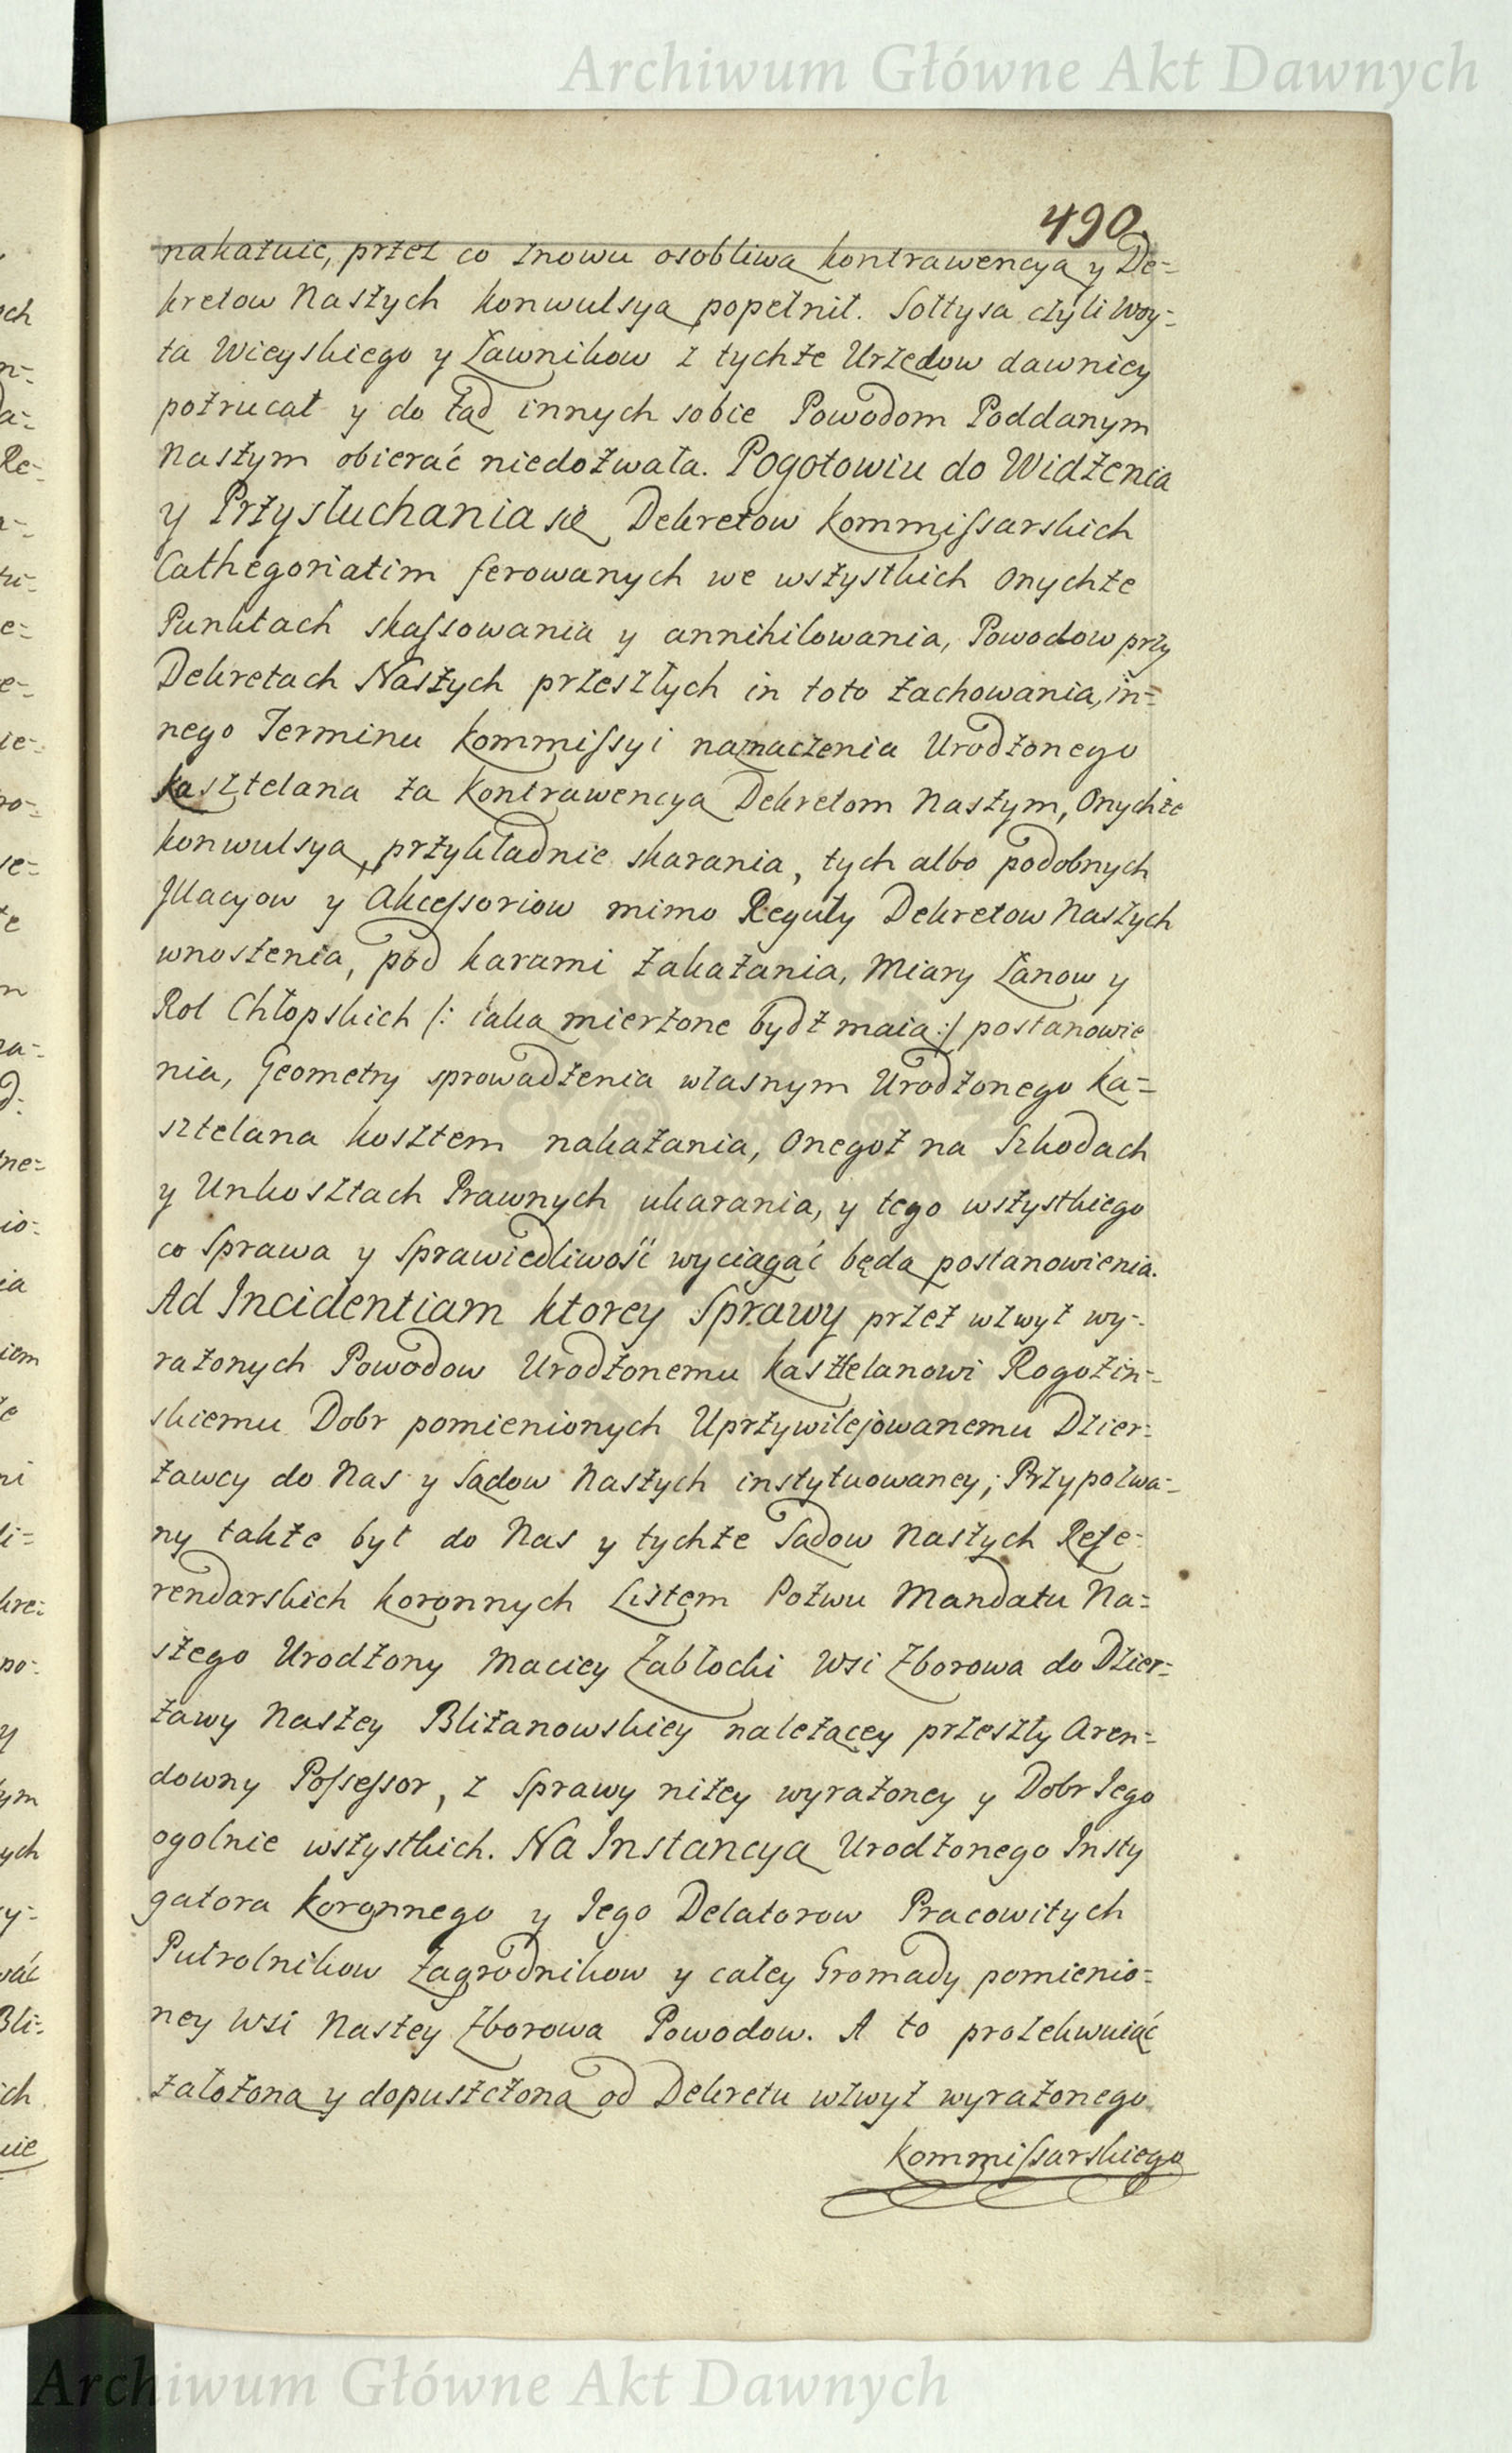 Archiwum Główne Akt Dawnych
490.
nakażuie, przez co znowu osobliwą kontrawencyą y De=
kretow Naszych konwulsyą popełnił. Sołtysa czyli Woy=
ta Wieyskiego y Ławnikow z tychże Urzędow dawniey
pozrucał y do tąd innych sobie Powodom Poddanym
Naszym obierać niedozwala. Pogotowiu do Widzenia
y Przysłuchania się Dekretow Kommissarskich
Cathegoriatim ferowanych we wszystkich Onychże
Punktach skassowania y annihilowania, Powodow przy
Dekretach Naszych przeszłych in toto zachowania, in=
nego Terminu Kommissyi naznaczenia Urodzonego
Kasztelana za Kontrawencyą Dekretom Naszym, Onychże
konwulsyą, przykładnie skarania, tych albo podobnych
Jllacyow y Akcessoriow mimo Reguły Dekretow Naszych
wnoszenia, pod karami zakazania, Miary Łanow y
Rol Chłopskich /: iaką mierzone bydź maią :/ postanowie
nia, Geometry sprowadzenia własnym Urodzonego Ka=
sztelana kosztem nakazania, Onegoż na Szkodach
y Unkosztach Prawnych ukarania, y tego wszystkiego
co Sprawa y Sprawiedliwość wyciągać będą postanowienia.
Ad Incidentiam ktorey Sprawy przez wzwyż wy=
rażonych Powodow Urodzonemu Kasztelanowi Rogoziń=
skiemu Dobr pomienionych Uprzywilejowanemu Dzier=
żawcy do Nas y Sądow Naszych instytuowaney; Przypozwa=
ny także był do Nas y tychże Sądow Naszych Refe=
rendarskich Koronnych Listem Pozwu Mandatu Na=
szego Urodzony Maciey Zabłocki Wsi Zborowa do Dzier=
żawy Naszey Bliżanowskiey należącey przeszły Aren=
downy Possessor, z Sprawy niżey wyrażoney y Dobr Iego
ogolnie wszystkich. Na Instancyą Urodzonego Insty
gatora Koronnego y Iego Delatorow Pracowitych
Pułrolnikow Zagrodnikow y całey Gromady pomienio=
ney Wsi Naszey Zborowa Powodow. A to prozekwuiąc
założoną y dopuszczoną od Dekretu wzwyż wyrażonego
Kommissarskiego
Archiwum Główne Akt Dawnych